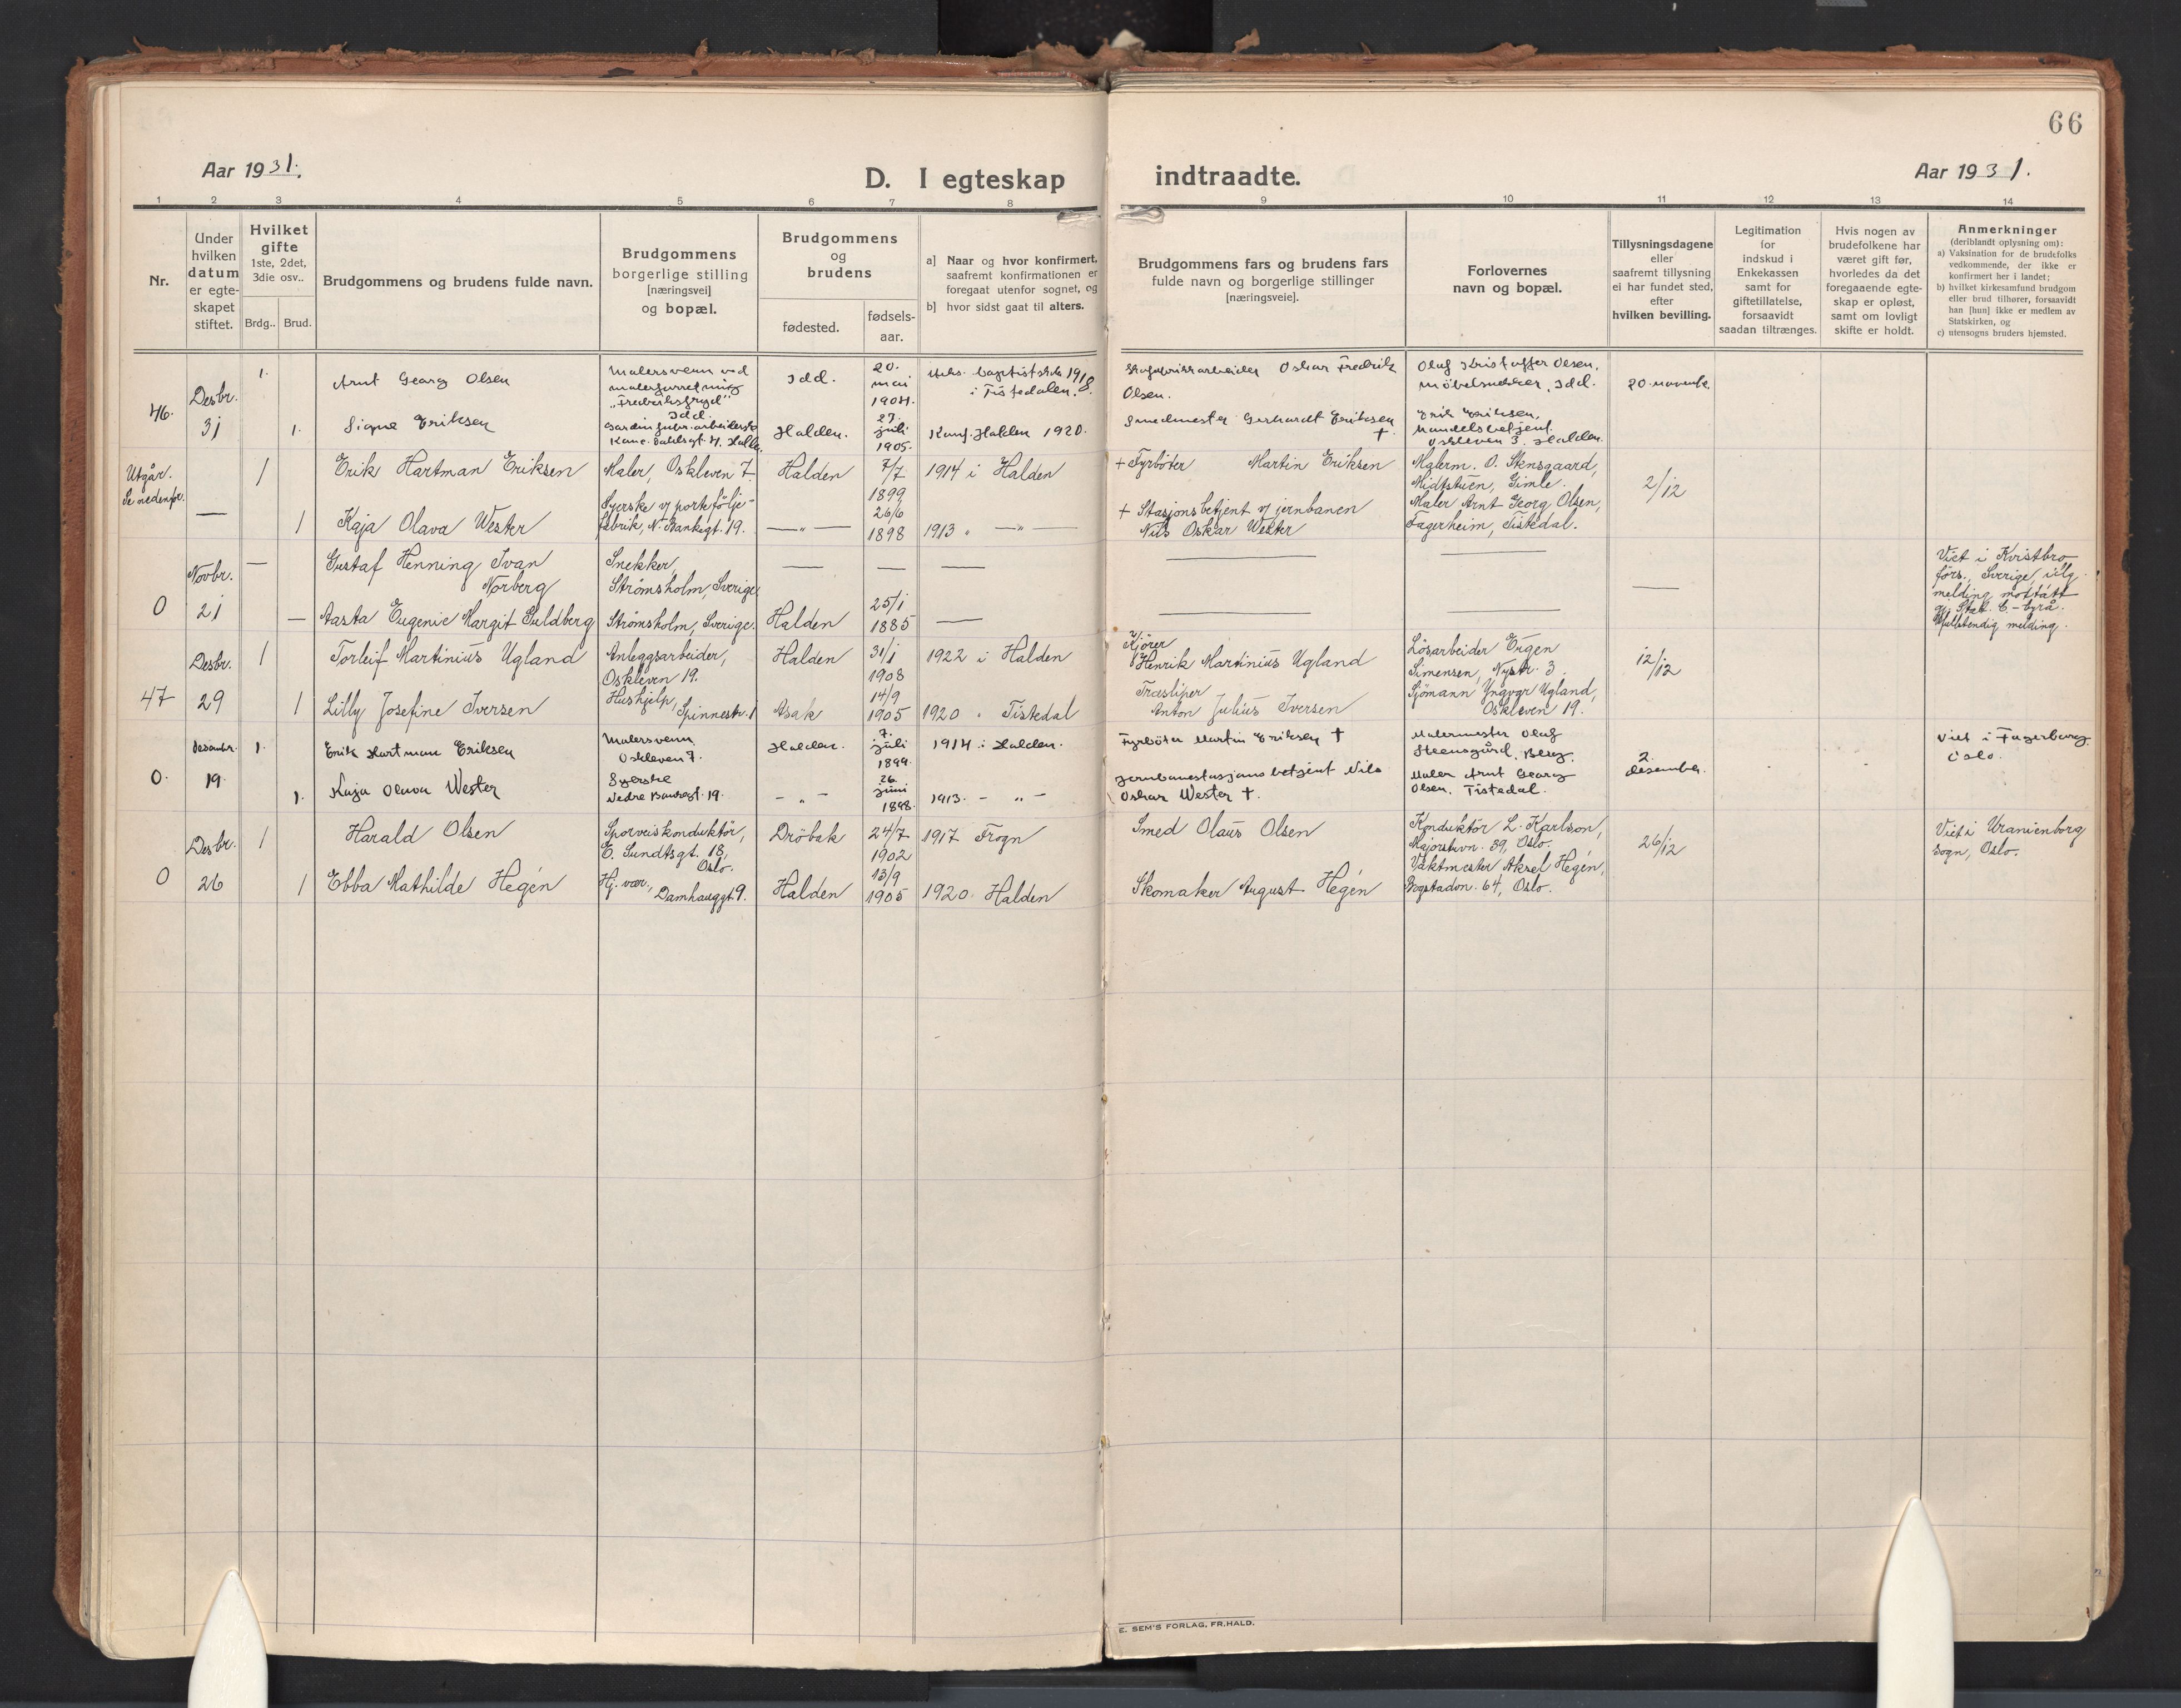 66
Aar 1931.
D. I egteskap indtraadte.
Aar 1931.
1 2 3 4 5 6 7 8 9 10 11 12 13 14
Nr.
Under
hvilken
datum
er egte-
skapet
stiftet.
Hvilket
gifte
1ste, 2det,
3die osv..
Brdg.. Brud.
Brudgommens og brudens fulde navn.
Brudgommens
borgerlige stilling
[næringsvei]
og bopæl.
Brudgommens
og
brudens
fødested.
fødsels-
aar.
a] Naar og hvor konfirmert,
saafremt konfirmationen er
foregaat utenfor sognet, og
b] hvor sidst gaat til alters.
Brudgommens fars og brudens fars
fulde navn og borgerlige stillinger
[næringsveie].
Forlovernes
navn og bopæl.
Tillysningsdagene
eller
saafremt tillysning
ei har fundet sted,
efter
hvilken bevilling.
Legitimation
for
indskud i
Enkekassen
samt for
giftetillatelse,
forsaavidt
saadan tiltrænges.
Hvis nogen av
brudefolkene har
været gift før,
hvorledes da det
foregaaende egte-
skap er opløst,
samt om lovligt
skifte er holdt.
Anmerkninger
(deriblandt oplysning om):
a) Vaksination for de brudefolks
vedkommende, der ikke er
konfirmert her i landet;
b) hvilket kirkesamfund brudgom
eller brud tilhører, forsaavidt
han [hun] ikke er medlem av
Statskirken, og
c) utensogns bruders hjemsted.
46.
Desbr.
31
1.
Arnt Georg Olsen
Malersvenn ved
malerforretning
"Fredriksfryd"
Idd.
Idd.
20.
mai
1904.
baptistkirke 1918
i Tistedalen.
Skofabrikkarbeider Oskar Fredrik
Olsen.
Oluf Kristoffer Olsen,
møbelsnekker, Idd.
20. novembr.
1.
Signe Eriksen
Gardinfabr. arbeiderske
Halden.
27.
juli
1905.
Konf. Halden 1920.
Smedmester Gerhardt Eriksen
†
Erik Eriksen,
handelsbetjent.
Oskleven 3. Halden.
Utgår.
Se nedenfor.
—
1
Erik Hartman Eriksen
Maler, Oskleven 7.
Halden
7/7
1899
1914 i Halden
+ Fyrbøter Martin Eriksen
Malerm. O. Stensgaard,
Midtstuen, Gimle.
2/12
1
Kaja Olava Wester
Syerske v/ portefölje-
fabrik, N. Bankegt. 19.
— „ —
26/6
1898
1913 „ — „ —
+ Stasjonsbetjent v/ jernbanen
Nils Oskar Wester
Maler Arnt Georg Olsen,
Fagerheim, Tistedal.
0
Novbr.
21
—
Gustaf Henning Ivan
Norberg
Snekker,
Strömsholm, Sverige
— — —
— —
—
Viet i Kvistbro
førs., Sverige, iflg.
melding mottatt
gj. Stat. C-byrå.
Ufullstendig melding.
—
Aasta Eugenie Margit Guldberg
Strömsholm, Sverige.
Halden
25/1
1885
—
— —
47
Desbr.
29
1
Torleif Martinius Ugland
Anleggsarbeider,
Oskleven 19.
Halden
31/1
1908
1922 i Halden
Kjörer
Henrik Martinius Ugland
Lösarbeider Eugen
Simensen, Nystr. 3.
12/12
1
Lilly Josefine Iversen
Hushjelp,
Spinnestr. 1
Asak
14/9
1905
1920 „ Tistedal
Træsliper
Anton Julius Iversen
Sjömann Yngvar Ugland,
Oskleven 19.
0.
desembr.
19.
1.
Erik Hartman Eriksen
Malersvenn
Oskleven 7.
Halden.
7.
juli
1899.
1914 i Halden.
Fyrbøter Martin Eriksen †
Malermester Oluf
Steensgård, Berg.
2.
desember.
Viet i Fagerborg
Oslo.
1.
Kaja Olava Wester
Syerske
Nedre Bankegt. 19.
- „ -
26.
juni
1898.
1913. - „ -
Jernbanestasjonsbetjent Nils
Oskar Wester †.
Maler Arnt Georg
Olsen. Tistedal.
0
Desbr.
26
1
Harald Olsen
Sporveiskonduktör,
E. Sundtsgt. 18,
Oslo.
Dröbak
24/7
1902
1917 Frogn
Smed Olaus Olsen
Konduktör L. Karlson,
Majorstuvn. 39, Oslo.
26/12
Viet i Uranienborg
sogn, Oslo.
1
Ebba Mathilde Hegén
Hj. vær.,
Damhauggt. 9.
Halden
13/9
1905
1920 Halden
Skomaker August Hegén
Vaktmester Aksel Hegén,
Bogstadvn. 64, Oslo.
E. SEM'S FORLAG, FR.HALD.